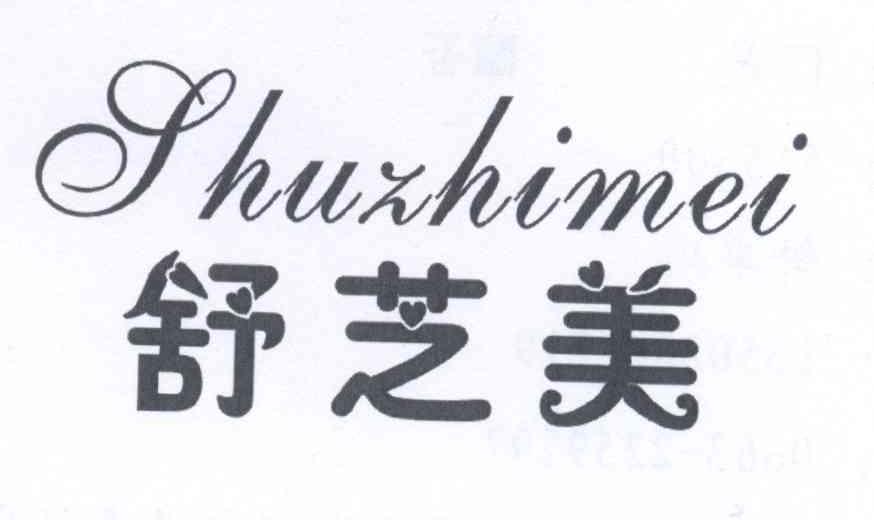 Shuzhimei
舒芝美